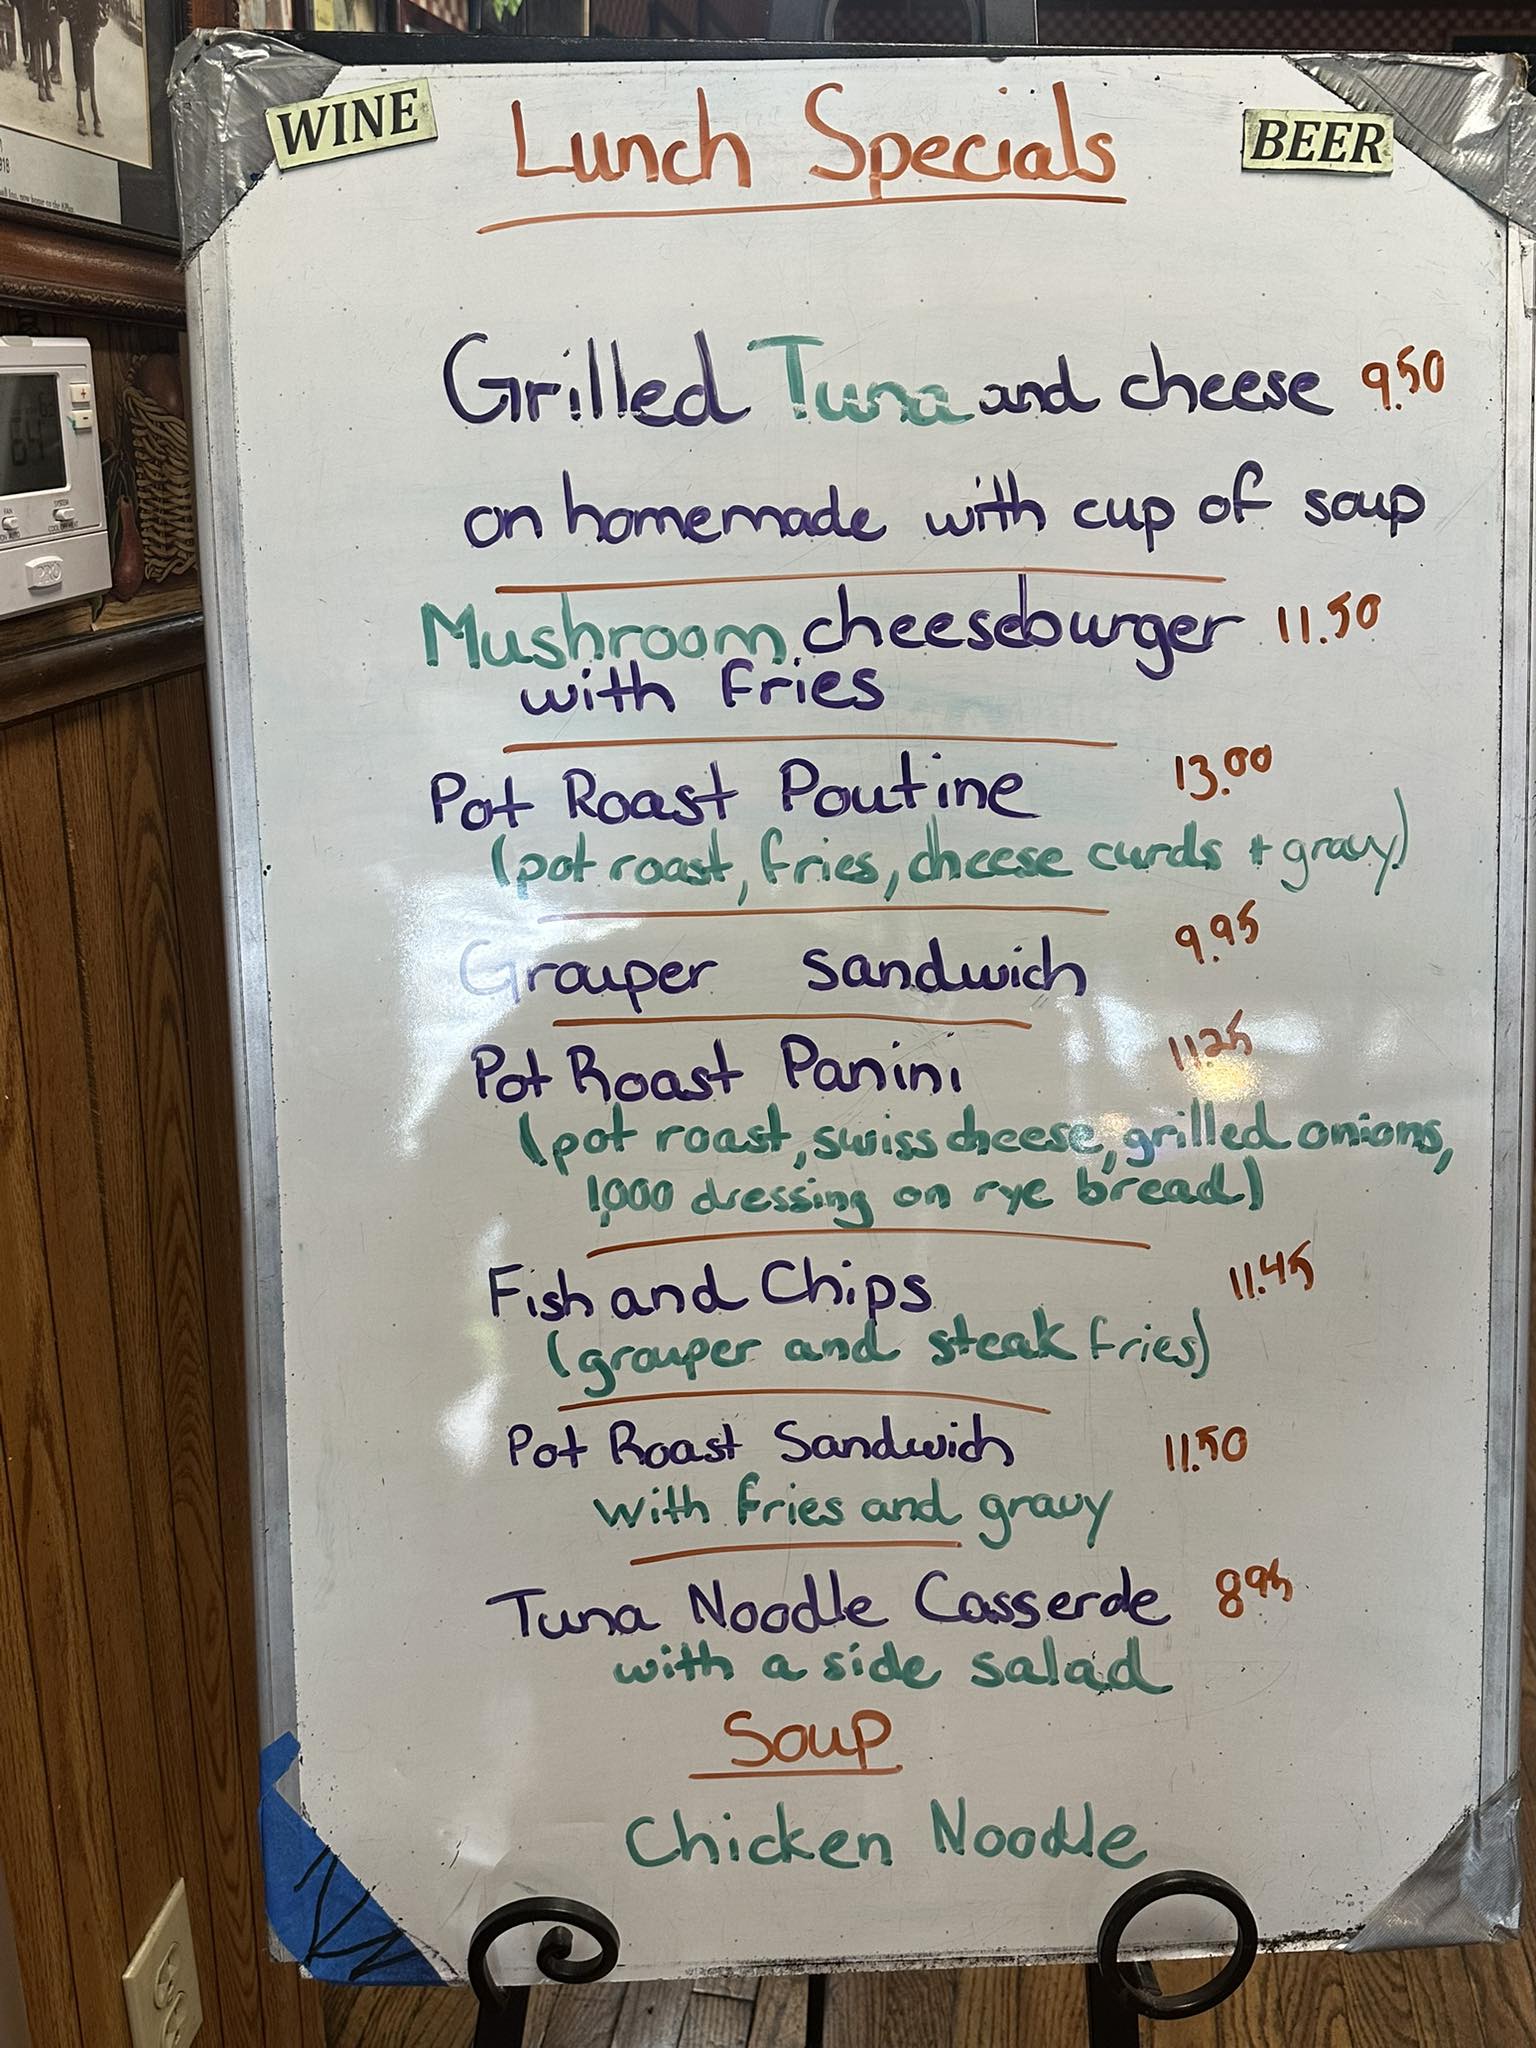 WINE
Lunch Specials
BEER
Grilled Tuna and cheese 9.50
on homemade with cup of soup
Mushroom cheeseburger 11.50
with fries
Pot Roast Poutine 13.00
(pot roast, fries, cheese curds + gravy)
Grouper sandwich 9.95
Pot Roast Panini 11.25
(pot roast, swiss cheese, grilled onions,
1,000 dressing on rye bread)
Fish and Chips 11.45
(grouper and steak fries)
Pot Roast Sandwich 11.50
with fries and gravy
Tuna Noodle Casserole 8.95
with a side salad
Soup
Chicken Noodle
FAN
SYSTEM
PRO